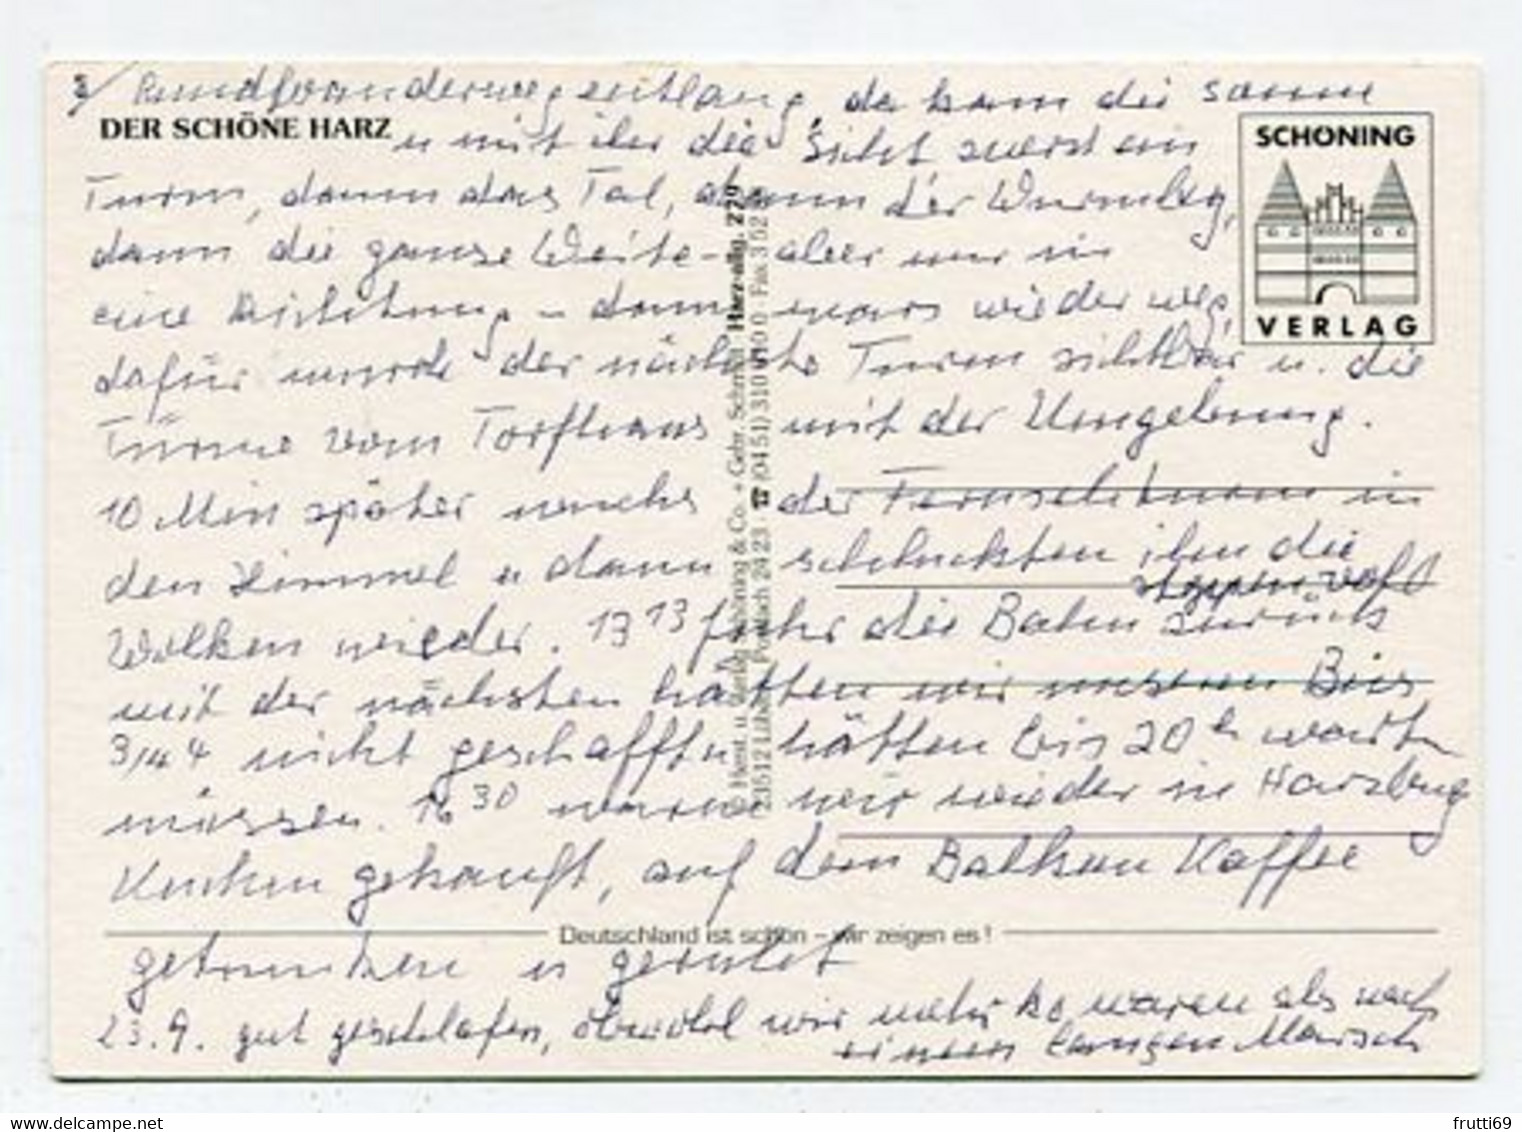 3/ Rundwanderweg entlang, da kam die Sonne
DER SCHÖNE HARZ
u mit ihr die Sicht zuerst ein
Turm, dann das Tal, dann der Wurmberg,
dann die ganze Weite - aber nur in
eine Richtung - dann wars wieder weg,
dafür wurde der nächste Turm sichtbar u. die
Türme vom Torfhaus mit der Umgebung.
10 Min später wuchs der Fernsehturm in
den Himmel u dann schluckten ihn die
Wolken wieder. 13 13 fuhr die Bahn zurück
mit der nächsten hätten wir unseren Bus
3/4 4 nicht geschafft u hätten bis 20 h warten
müssen. 16 30 waren wir wieder in Harzburg
Kuchen gekauft, auf dem Balkon Kaffee
getrunken u geruht
23.9. gut geschlafen, obwohl wir mehr ko waren als nach
einem langen Marsch
SCHÖNING
VERLAG
Harz-allg.
23512 Lübeck · Postfach 24 23 · ☎ (04 51)
Deutschland ist schön – wir zeigen es!
frutti69